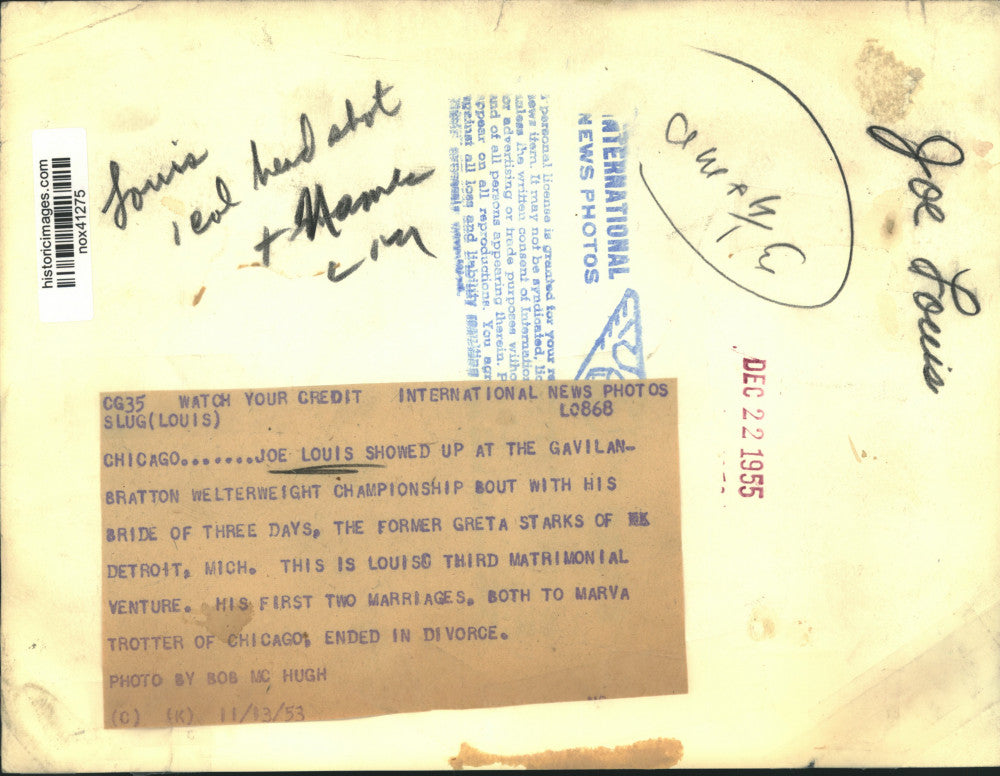 historicimages.com
nox41275
Louis
1 col head shot
+ Mamie
INTERNATIONAL
NEWS PHOTOS
personal license is granted for your
news item. It may not be syndicated,
unless the written consent of
or advertising or trade purposes
and of all persons appearing therein.
appear on all reproductions. You
against all loss and liability
Joe Louis
DEC 22 1955
CG35 WATCH YOUR CREDIT INTERNATIONAL NEWS PHOTOS
SLUG(LOUIS) LC868
CHICAGO.......JOE LOUIS SHOWED UP AT THE GAVILAN-
BRATTON WELTERWEIGHT CHAMPIONSHIP BOUT WITH HIS
BRIDE OF THREE DAYS, THE FORMER GRETA STARKS OF
DETROIT, MICH. THIS IS LOUIS THIRD MATRIMONIAL
VENTURE. HIS FIRST TWO MARRIAGES, BOTH TO MARVA
TROTTER OF CHICAGO, ENDED IN DIVORCE.
PHOTO BY BOB MC HUGH
(C) (K) 11/13/53